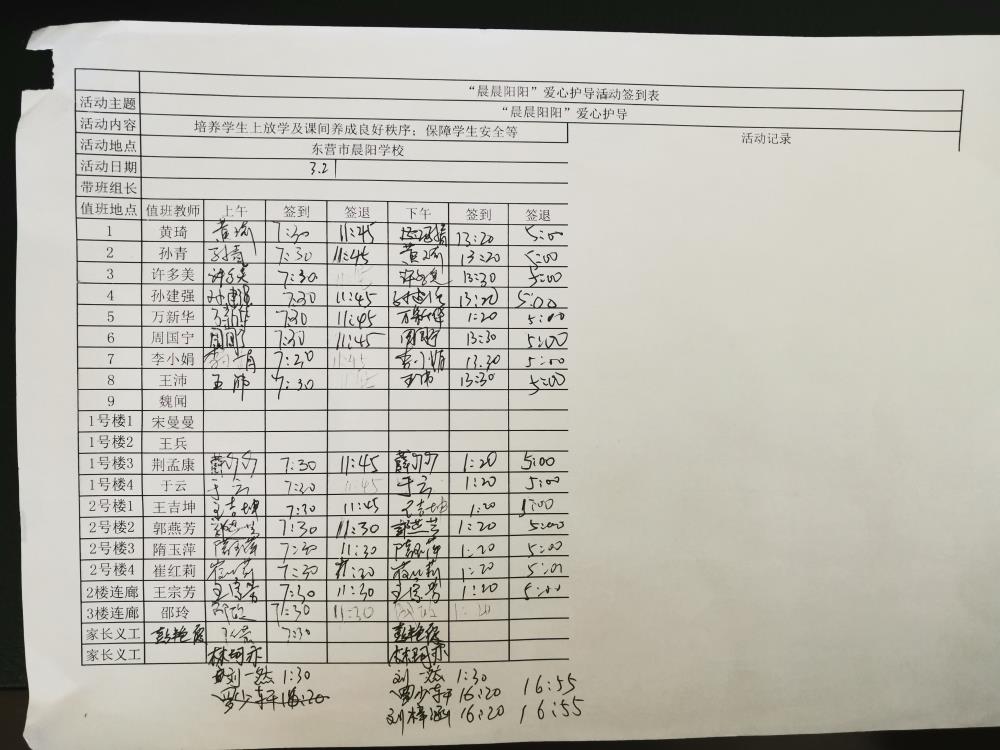 “晨晨阳阳”爱心护导活动签到表
活动主题 “晨晨阳阳”爱心护导
活动内容 培养学生上放学及课间养成良好秩序;保障学生安全等 活动记录
活动地点 东营市晨阳学校
活动日期 3.21
带班组长
值班地点 值班教师 上午 签到 签退 下午 签到 签退
1 黄琦 黄琦 7:30 11:45 13:20 5:00
2 孙青 孙青 7:30 11:45 黄琦 13:20 5:00
3 许多美 许多美 7:30 11:45 许多美 13:30 5:00
4 孙建强 孙建强 7:30 11:45 孙建强 13:20 5:00
5 万新华 万新华 7:30 11:45 万新华 1:20 5:00
6 周国宁 周国宁 7:30 11:45 周国宁 13:30 5:00
7 李小娟 李小娟 7:20 11:45 李小娟 13.30 5:00
8 王沛 王沛 7:30 11:45 王沛 13:30 5:00
9 魏闻
1号楼1 宋曼曼
1号楼2 王兵
1号楼3 荆孟康 7:30 11:45 1:20 5:00
1号楼4 于云 于云 7:30 11:45 于云 1:20 5:00
2号楼1 王吉坤 王吉坤 7:30 11:45 王吉坤 1:20 5:00
2号楼2 郭燕芳 郭燕芳 7:30 11:30 郭燕芳 1:20 5:00
2号楼3 隋玉萍 隋玉萍 7:30 11:30 隋玉萍 1:20 5:00
2号楼4 崔红莉 崔红莉 7:30 11:20 崔红莉 1:20 5:01
2楼连廊 王宗芳 王宗芳 7:30 11:30 王宗芳 1:20 5:00
3楼连廊 邵玲 邵玲 7:30 11:30 1:20
家长义工 7:30
家长义工
刘一然 1:30 刘一然 1:30
罗少轩 16:20 罗少轩 16:20 16:55
刘梓涵 16:20 16:55